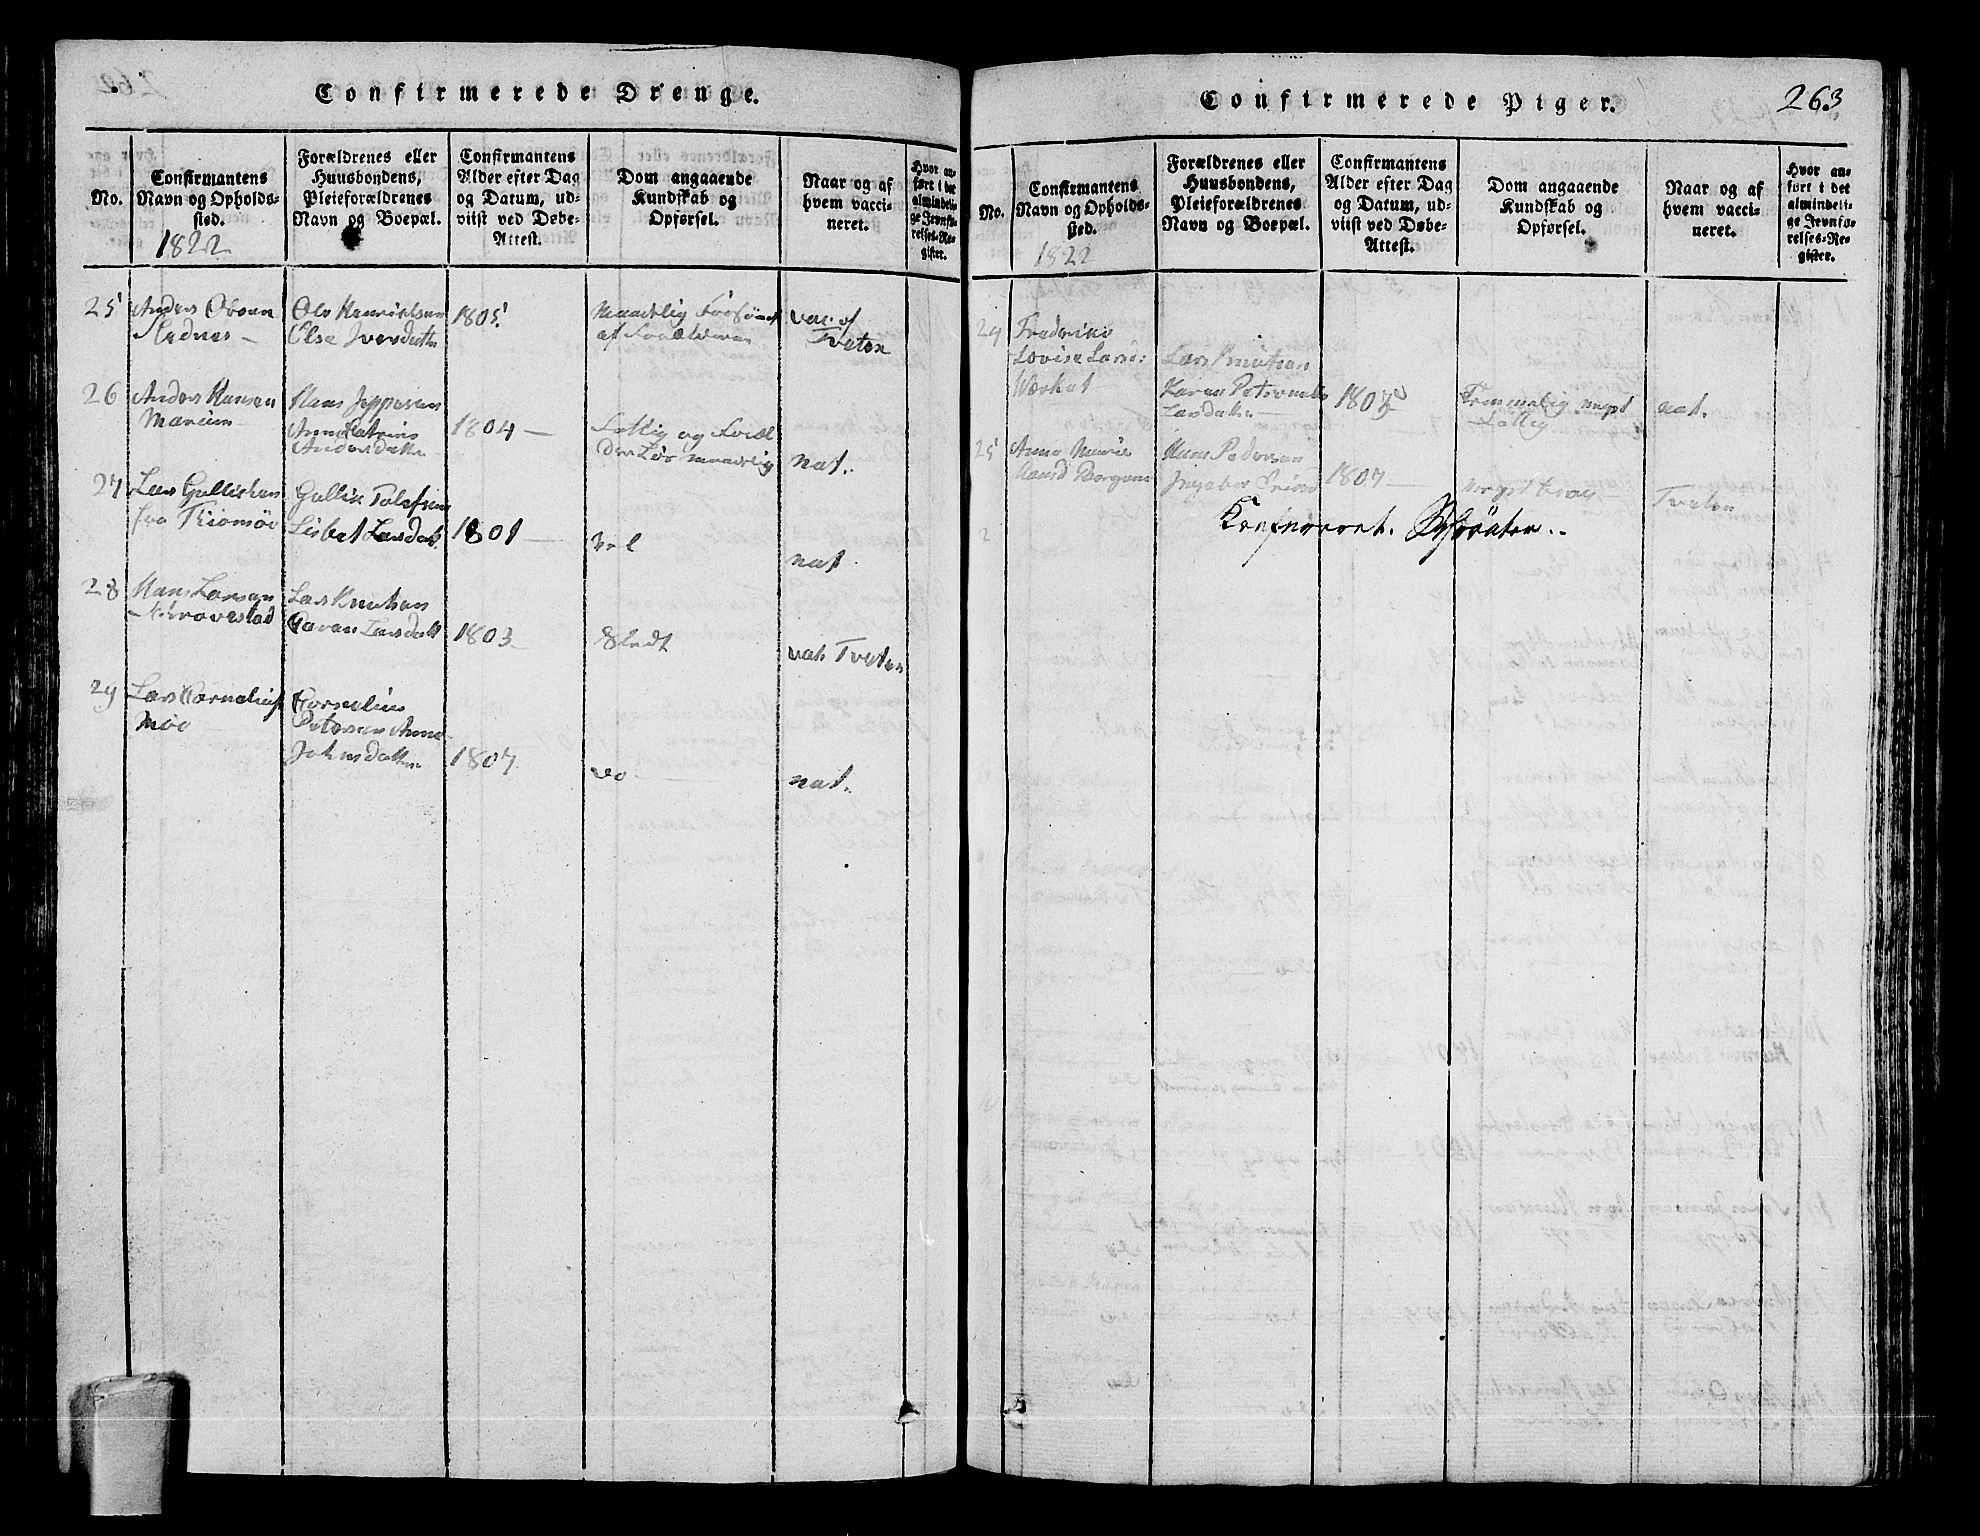 Confirmerede Drenge.
No.
Confirmantens
Navn og Opholds-
sted.
1822
Forældrenes eller
Huusbondens,
Pleieforældrenes
Navn og Boepæl.
Confirmantens
Alder efter Dag
og Datum, ud-
viist ved Døbe-
Attest.
Dom angaaende
Kundskab og
Opførsel.
Naar og af
hvem vacci-
neret.
Hvor an-
ført i det
almindeli-
ge Jevnfø-
relses-Re-
gister.
25
Anders Olsen
Ole Henrichsen
Else Iversdatter
1805
Maadelig
af Forældrene
vac. af
Tveten
26
Anders Hansen
Hans Jeppesen
Anne Catrine
Andersdatter
1804 —
Fattig og Foræl
derløs maadelig
nat.
27
Lars Gullichsen
fra Tiomøe
Gullik Tolefsen
Lisbet Larsdatt.
1801 —
vel
nat.
28
Hans Larsen
Lars Knutsen
Caren Larsdatt
1803
Slet
vac Tveten
29
Lars Cornelius
Møe
Cornelius
Petersen Anne
Johnsdatter
1807.
do
nat.
Confirmerede Piger.
263
No.
Confirmantens
Navn og Opholds-
sted.
1822
Forældrenes eller
Huusbondens,
Pleieforældrenes
Navn og Boepæl.
Confirmantens
Alder efter Dag
og Datum, ud-
viist ved Døbe-
Attest.
Dom angaaende
Kundskab og
Opførsel.
Naar og af
hvem vacci-
neret.
Hvor an-
ført i det
almindeli-
ge Jevnfø-
relses-Re-
gister.
24
Frederike
Lovise Larsd:
Værket
Lars Knutsen
Karen
Larsdatter
nat.
25
Anne Marie
Hansd Borgene
Hans Pedersen
1807 —
Tveten
Schrøter.